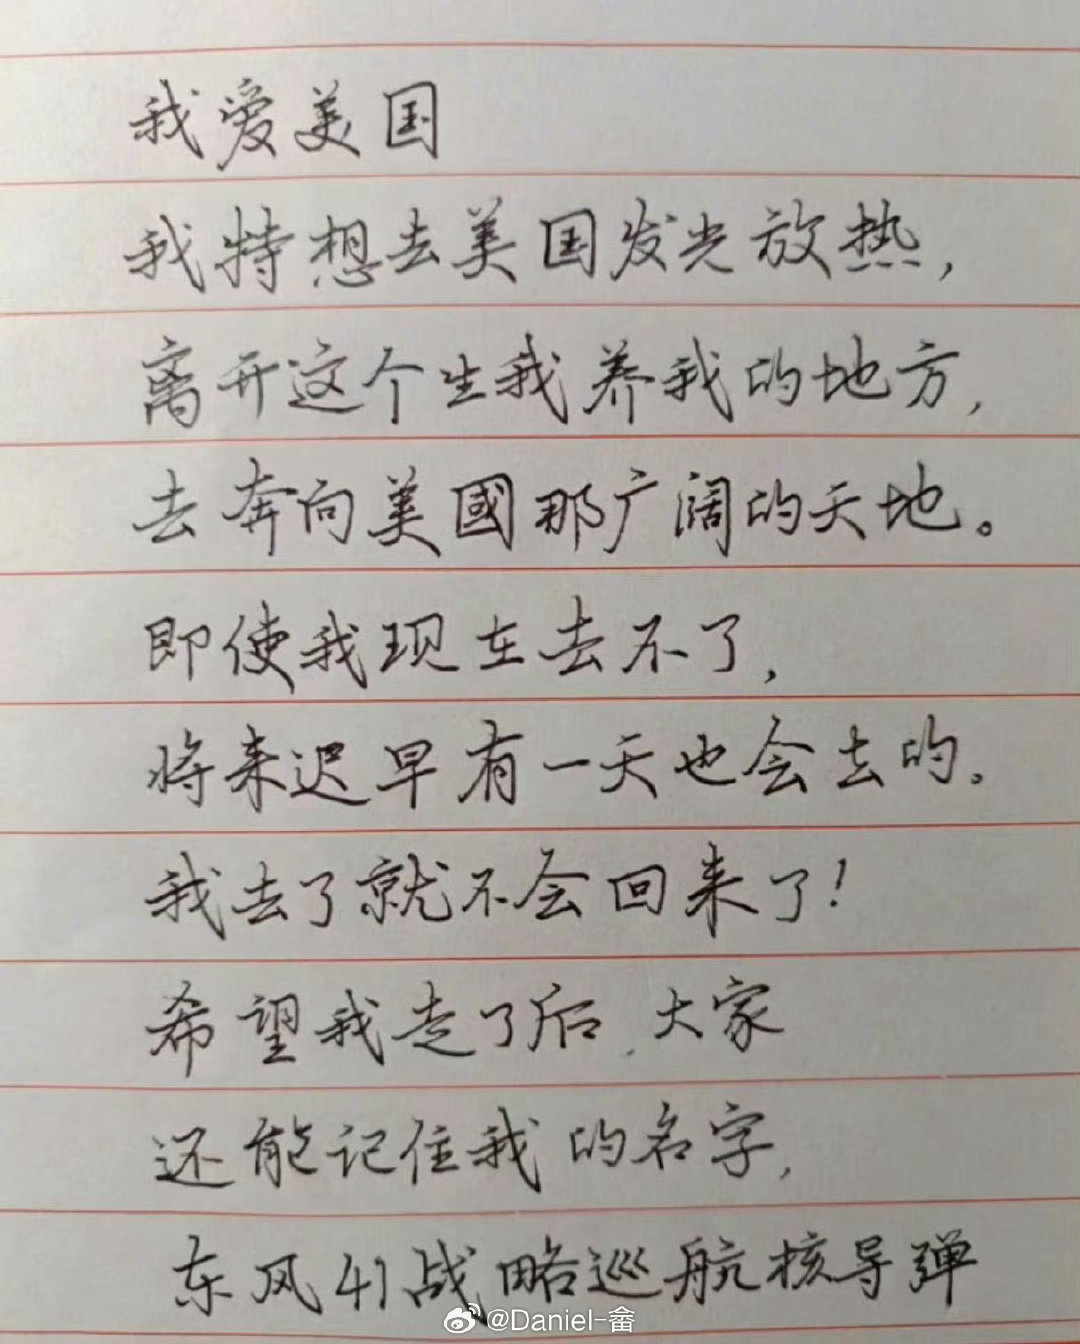 我爱美国
我特想去美国发光放热，
离开这个生我养我的地方，
去奔向美國那广阔的天地。
即使我现在去不了，
将来迟早有一天也会去的。
我去了就不会回来了！
希望我走了后，大家
还能记住我的名字，
东风41战略巡航核导弹
@Daniel-畲